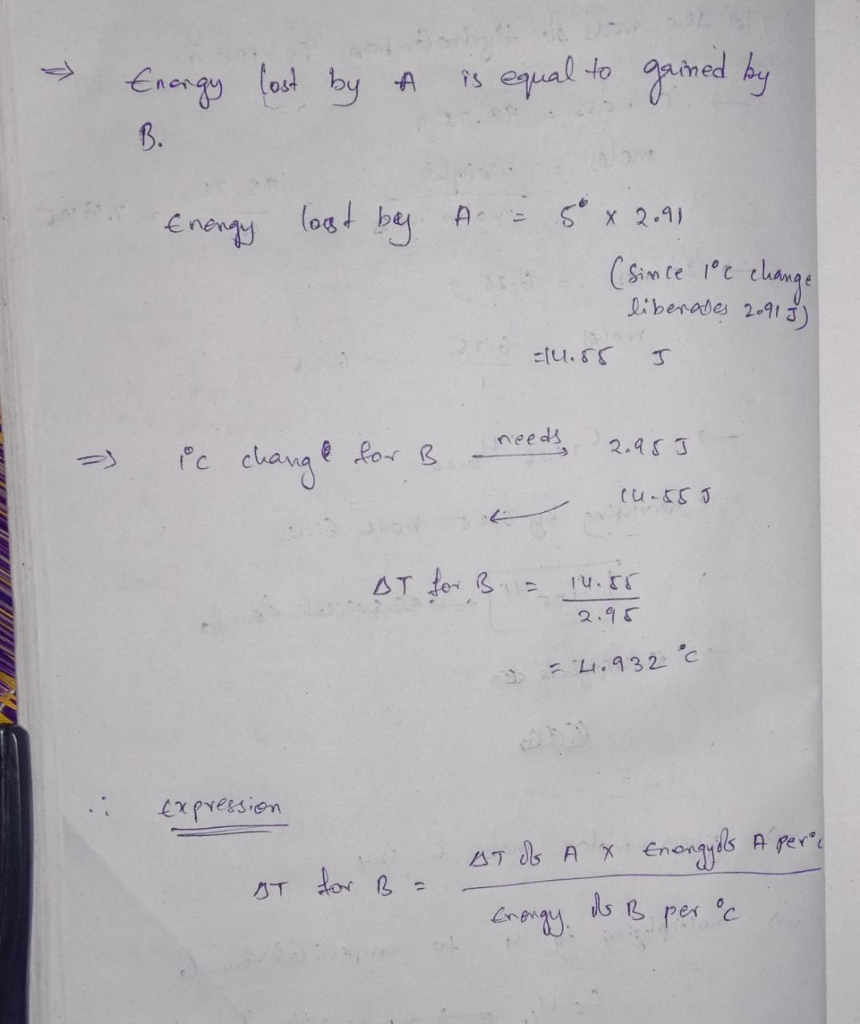 ⇒ Energy lost by A is equal to gained by
B.
Energy lost by A = 5° x 2.91
(Since 1°c change
liberates 2.91 J)
= 14.55 J
⇒ 1°c change for B needs → 2.95 J
← 14.55 J
ΔT for B = 14.55
2.95
= 4.932 °c
∴ Expression
ΔT of A x Energy of A per °c
ΔT for B =
Energy of B per °c